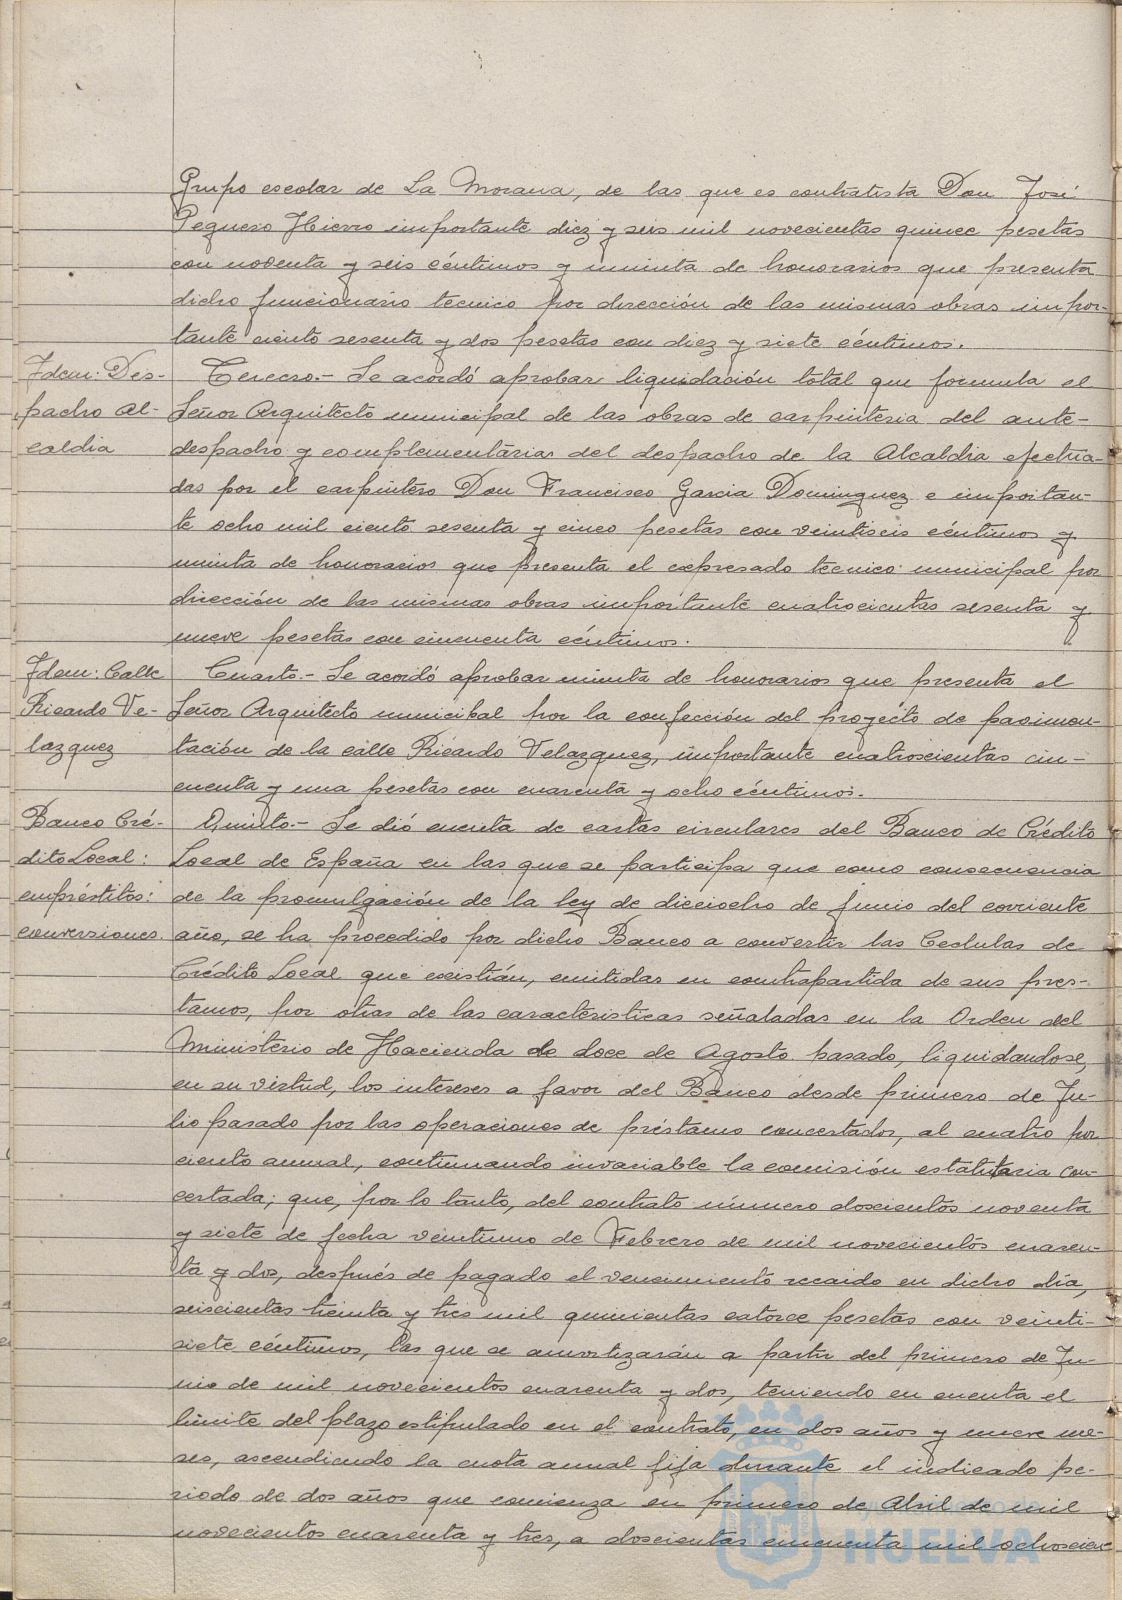 Grupo escolar de La Morana, de las que es contratista Don José
Pequero Hierro importante diez y seis mil novecientas quince pesetas
con noventa y seis céntimos y minuta de honorarios que presenta
dicho funcionario tecnico por dirección de las mismas obras impor-
tante ciento sesenta y dos pesetas con diez y siete céntimos.
Idem: Des-
pacho Al-
caldia
Tercero.- Se acordó aprobar liquidación total que formula el
Señor Arquitecto municipal de las obras de carpinteria del ante-
despacho y complementarias del despacho de la Alcaldia efectua-
das por el carpintero Don Francisco Garcia Dominguez e importan-
te ocho mil ciento sesenta y cinco pesetas con veintiseis céntimos y
minuta de honorarios que presenta el expresado tecnico municipal por
dirección de las mismas obras importante cuatrocientas sesenta y
nueve pesetas con cincuenta céntimos.
Idem: Calle
Ricardo Ve-
lazquez
Cuarto.- Se acordó aprobar minuta de honorarios que presenta el
Señor Arquitecto municipal por la confección del proyecto de pavimen-
tación de la calle Ricardo Velazquez, importante cuatroscientas cin-
cuenta y una pesetas con cuarenta y ocho céntimos.
Banco Cré-
dito Local:
empréstitos:
conversiones.
Quinto.- Se dió cuenta de cartas circulares del Banco de Crédito
Local de España en las que se participa que como consecuencia
de la promulgación de la ley de dieciocho de junio del corriente
año, se ha procedido por dicho Banco a convertir las Cedulas de
Crédito Local que existián, emitidas en contrapartida de sus pres-
tamos, por otras de las características señaladas en la Orden del
Ministerio de Hacienda de doce de Agosto pasado, liquidandose,
en su virtud, los intereses a favor del Banco desde primero de Ju-
lio pasado por las operaciones de préstamo concertados, al cuatro por
ciento annual, continuando invariable la comisión estatutaria con-
certada; que, por lo tanto, del contrato número doscientos noventa
y siete de fecha veintiuno de Febrero de mil novecientos cuaren-
ta y dos, después de pagado el vencimiento recaido en dicho día,
seiscientas treinta y tres mil quinientas catorce pesetas con veinti-
siete céntimos, las que se amortizarán a partir del primero de Ju-
nio de mil novecientos cuarenta y dos, teniendo en cuenta el
límite del plazo estipulado en el contrato, en dos años y nueve me-
ses, ascendiendo la cuota annual fija durante el indicado pe-
riodo de dos años que comienza en primero de Abril de mil
novecientos cuarenta y tres, a doscientas cincuenta mil ochocien
Ayuntamiento de
HUELVA